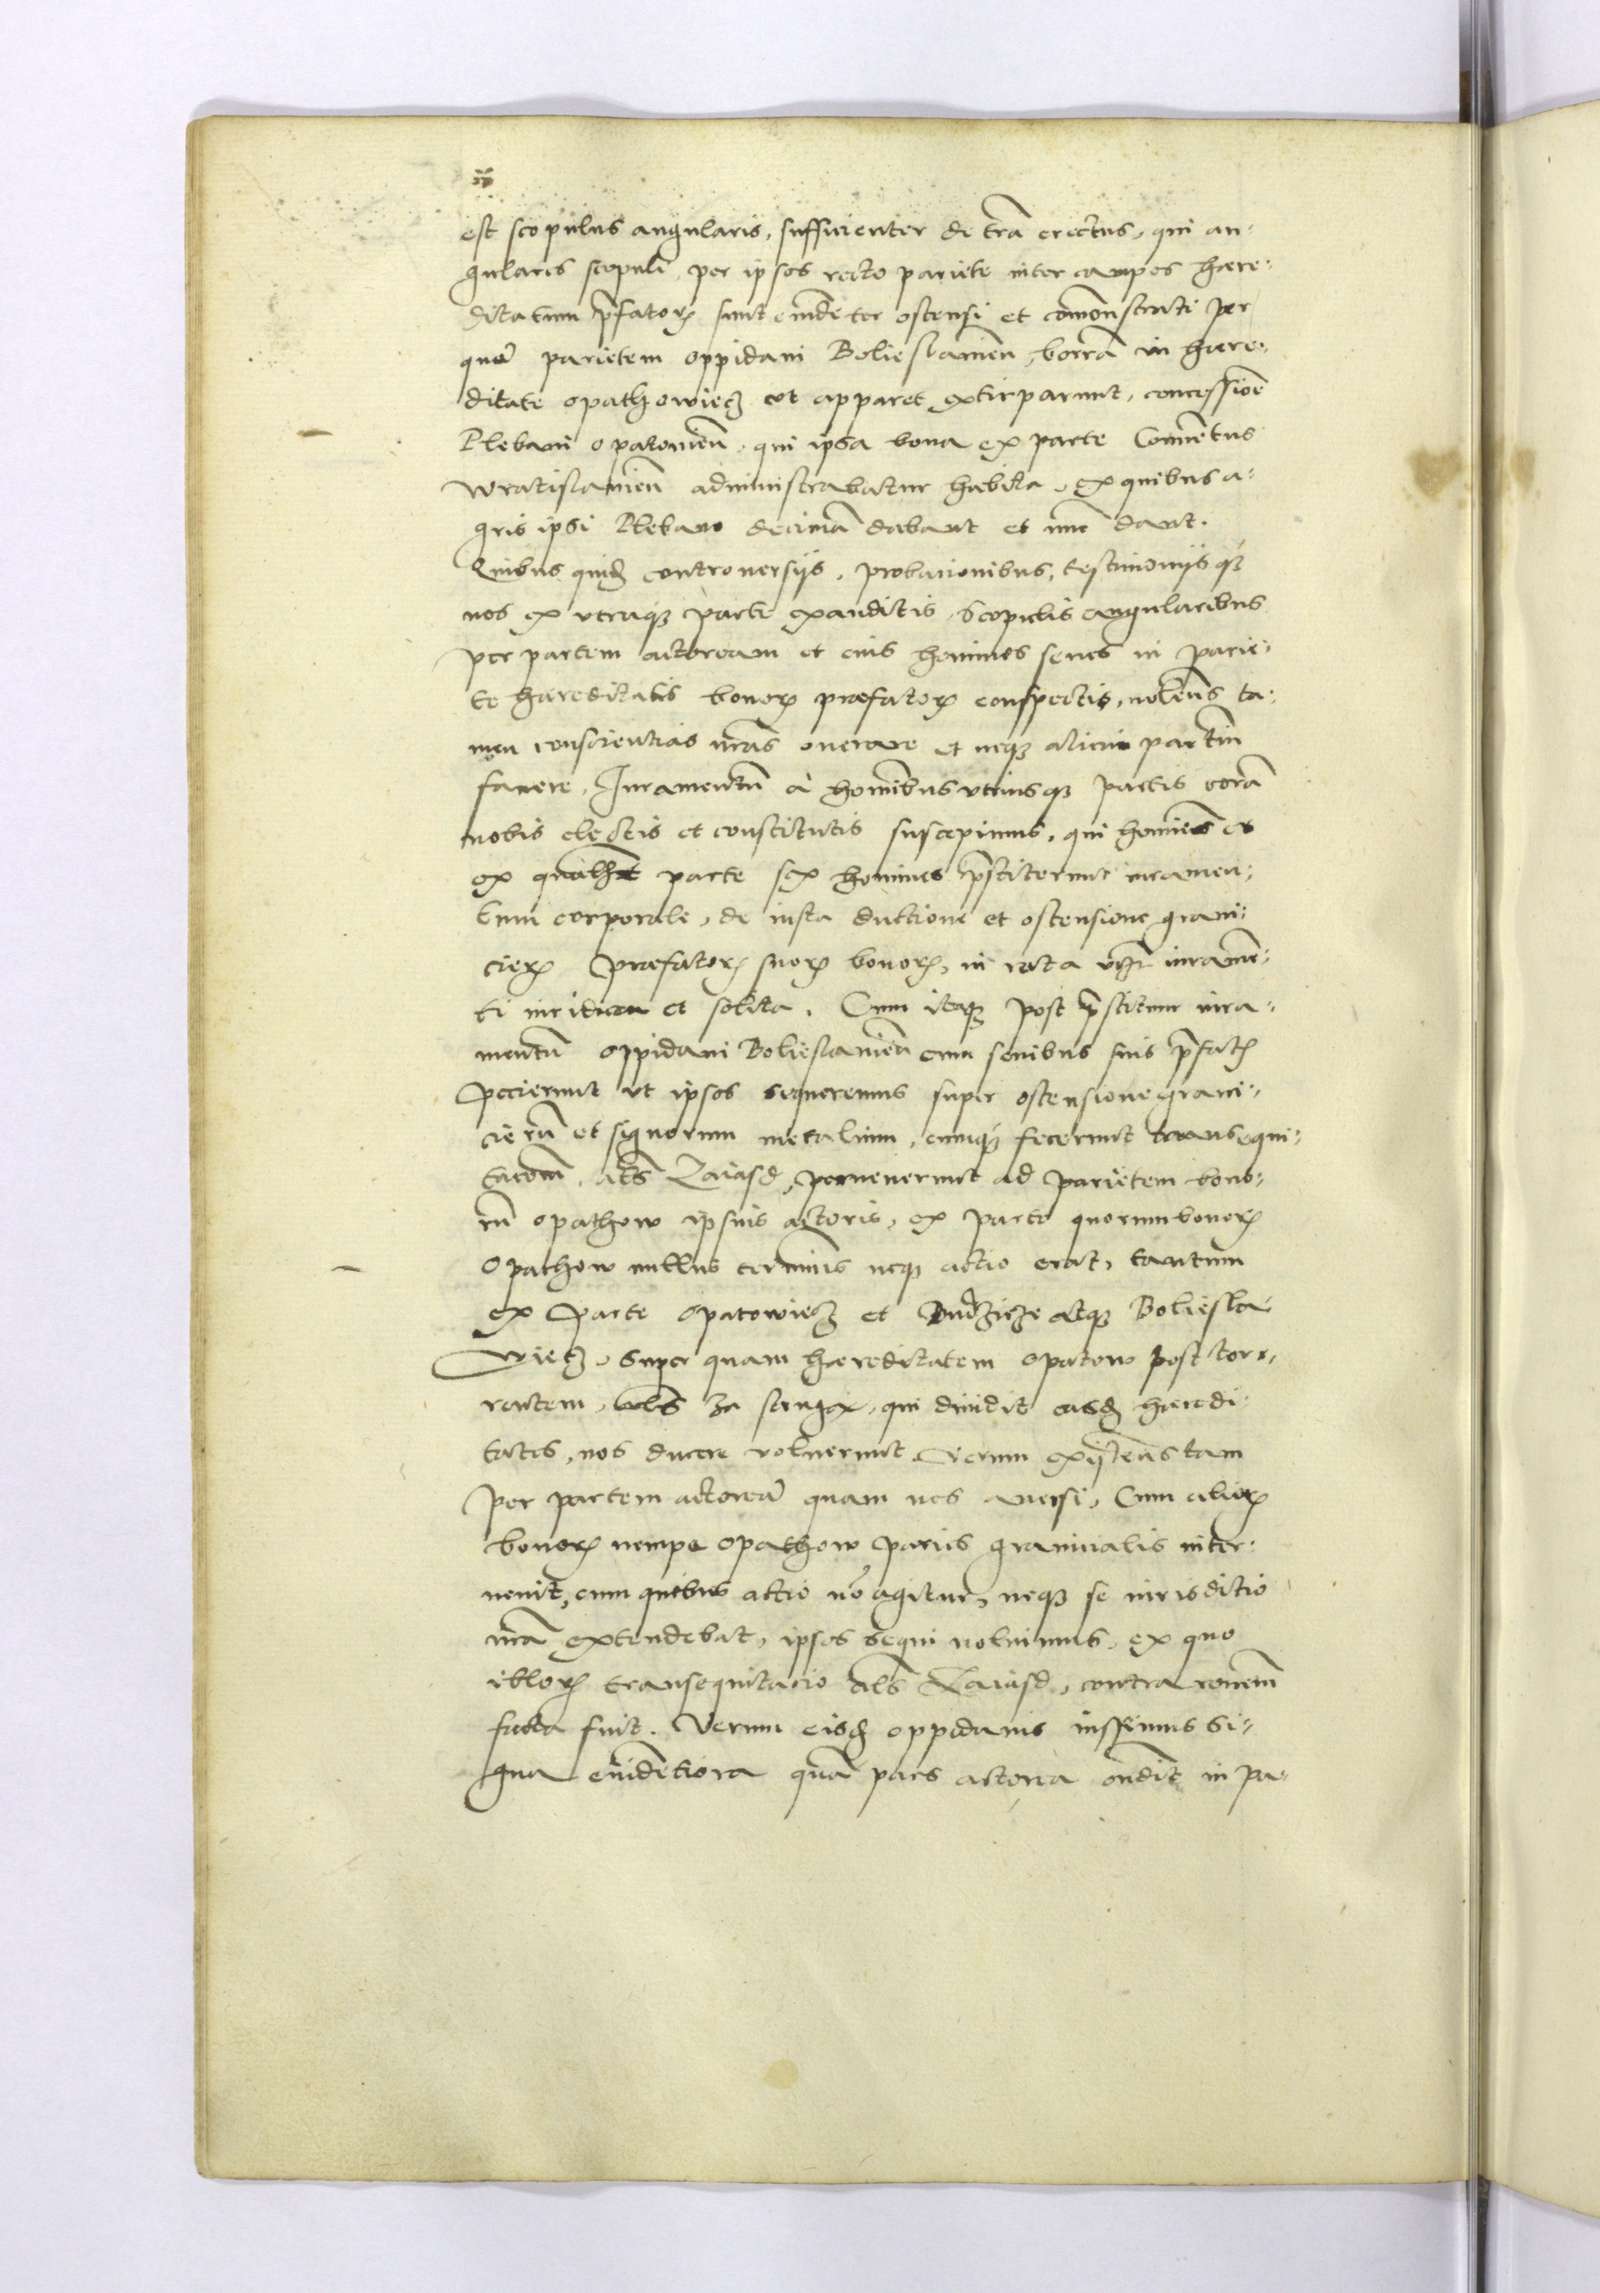 est scopulus angularis, sufficienter de tra erectus, qui an-
gulares scopuli, per ipsos recto pariete inter campos haere-
ditatum pfator sunt euidēter ostensi et comonstrati per
quē parietem oppidani Boliesłauien, borrā in haere-
ditate opathowiecz vt apparet extirparunt, concessioē
Plebani opatouieñ, qui ipsa bona ex parte Conuentus
Wratislauieñ administrabatur habita, ex quibus a-
gris ipsi Plebano decimā dabant et nunc dant.
Quibus quid controuersijs, probationibus, testimonijsq
nos ex vtraq parte exauditis, Scopulis angularibus
per partem actoream et eius homines senes in parie-
te haereditatis bonor praefator conspectis, nolens ta-
men conscientias nras onerare et neq alicui parti
fauere, Iuramentū à hominibus vtriusq partis corā
nobis electis et constitutis suscepimus, qui homines et
ex qualibet parte sex homines pstiterunt iuramen-
tum corporale, de iusta ductione et ostensione grani-
cier praefator suor bonor, in rota iuramē-
ti iuridica et solita. Cum itaq post pstitum iura-
mentū oppidani Boliesłauieñ cum senibus suis pfatis
pecierunt vt ipsos sequeremur super ostensione grani-
cierū et signorum metalium, cumq fecerunt transequi-
tacom, als Zaiasd, peruenerunt ad parietem bono-
rū opathow ipsius actoris, ex parte quorum bonor
Opathow nullus terminus neq actio erat, tantum
ex parte Opatowiecz et Dudzicze atq Boliesła
wiecz, Super quam haereditatem opatow post tor-
rentem, als za strugą, qui diuidit easd haeredi-
tates, nos ducere voluerunt. Verum existens tam
per partem actoreā quam nos auersi, Cum alior
bonor nempe Opathow paries granicialis inter-
uenit, cum quibus actio nō agitur, neq se iurisdictio
nra extendebat, ipsos sequi noluimus, ex quo
illor transequitacio als Zaiasd, contra ronem
facta fuit. Verum eisd oppidanis iussimus si-
gna euidētiora quā pars actorea ondit in pa-